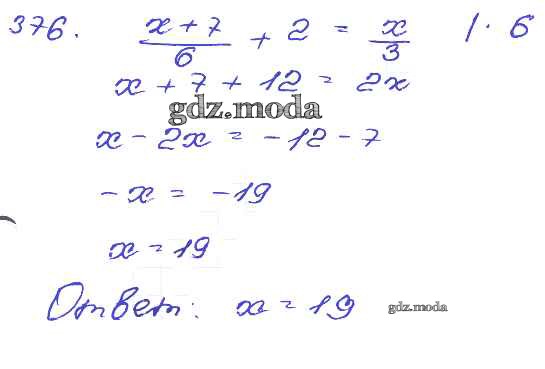 376. (x + 7)/6 + 2 = x/3 | · 6
x + 7 + 12 = 2x
gdz.moda
x - 2x = -12 - 7
-x = -19
x = 19
Ответ: x = 19 gdz.moda